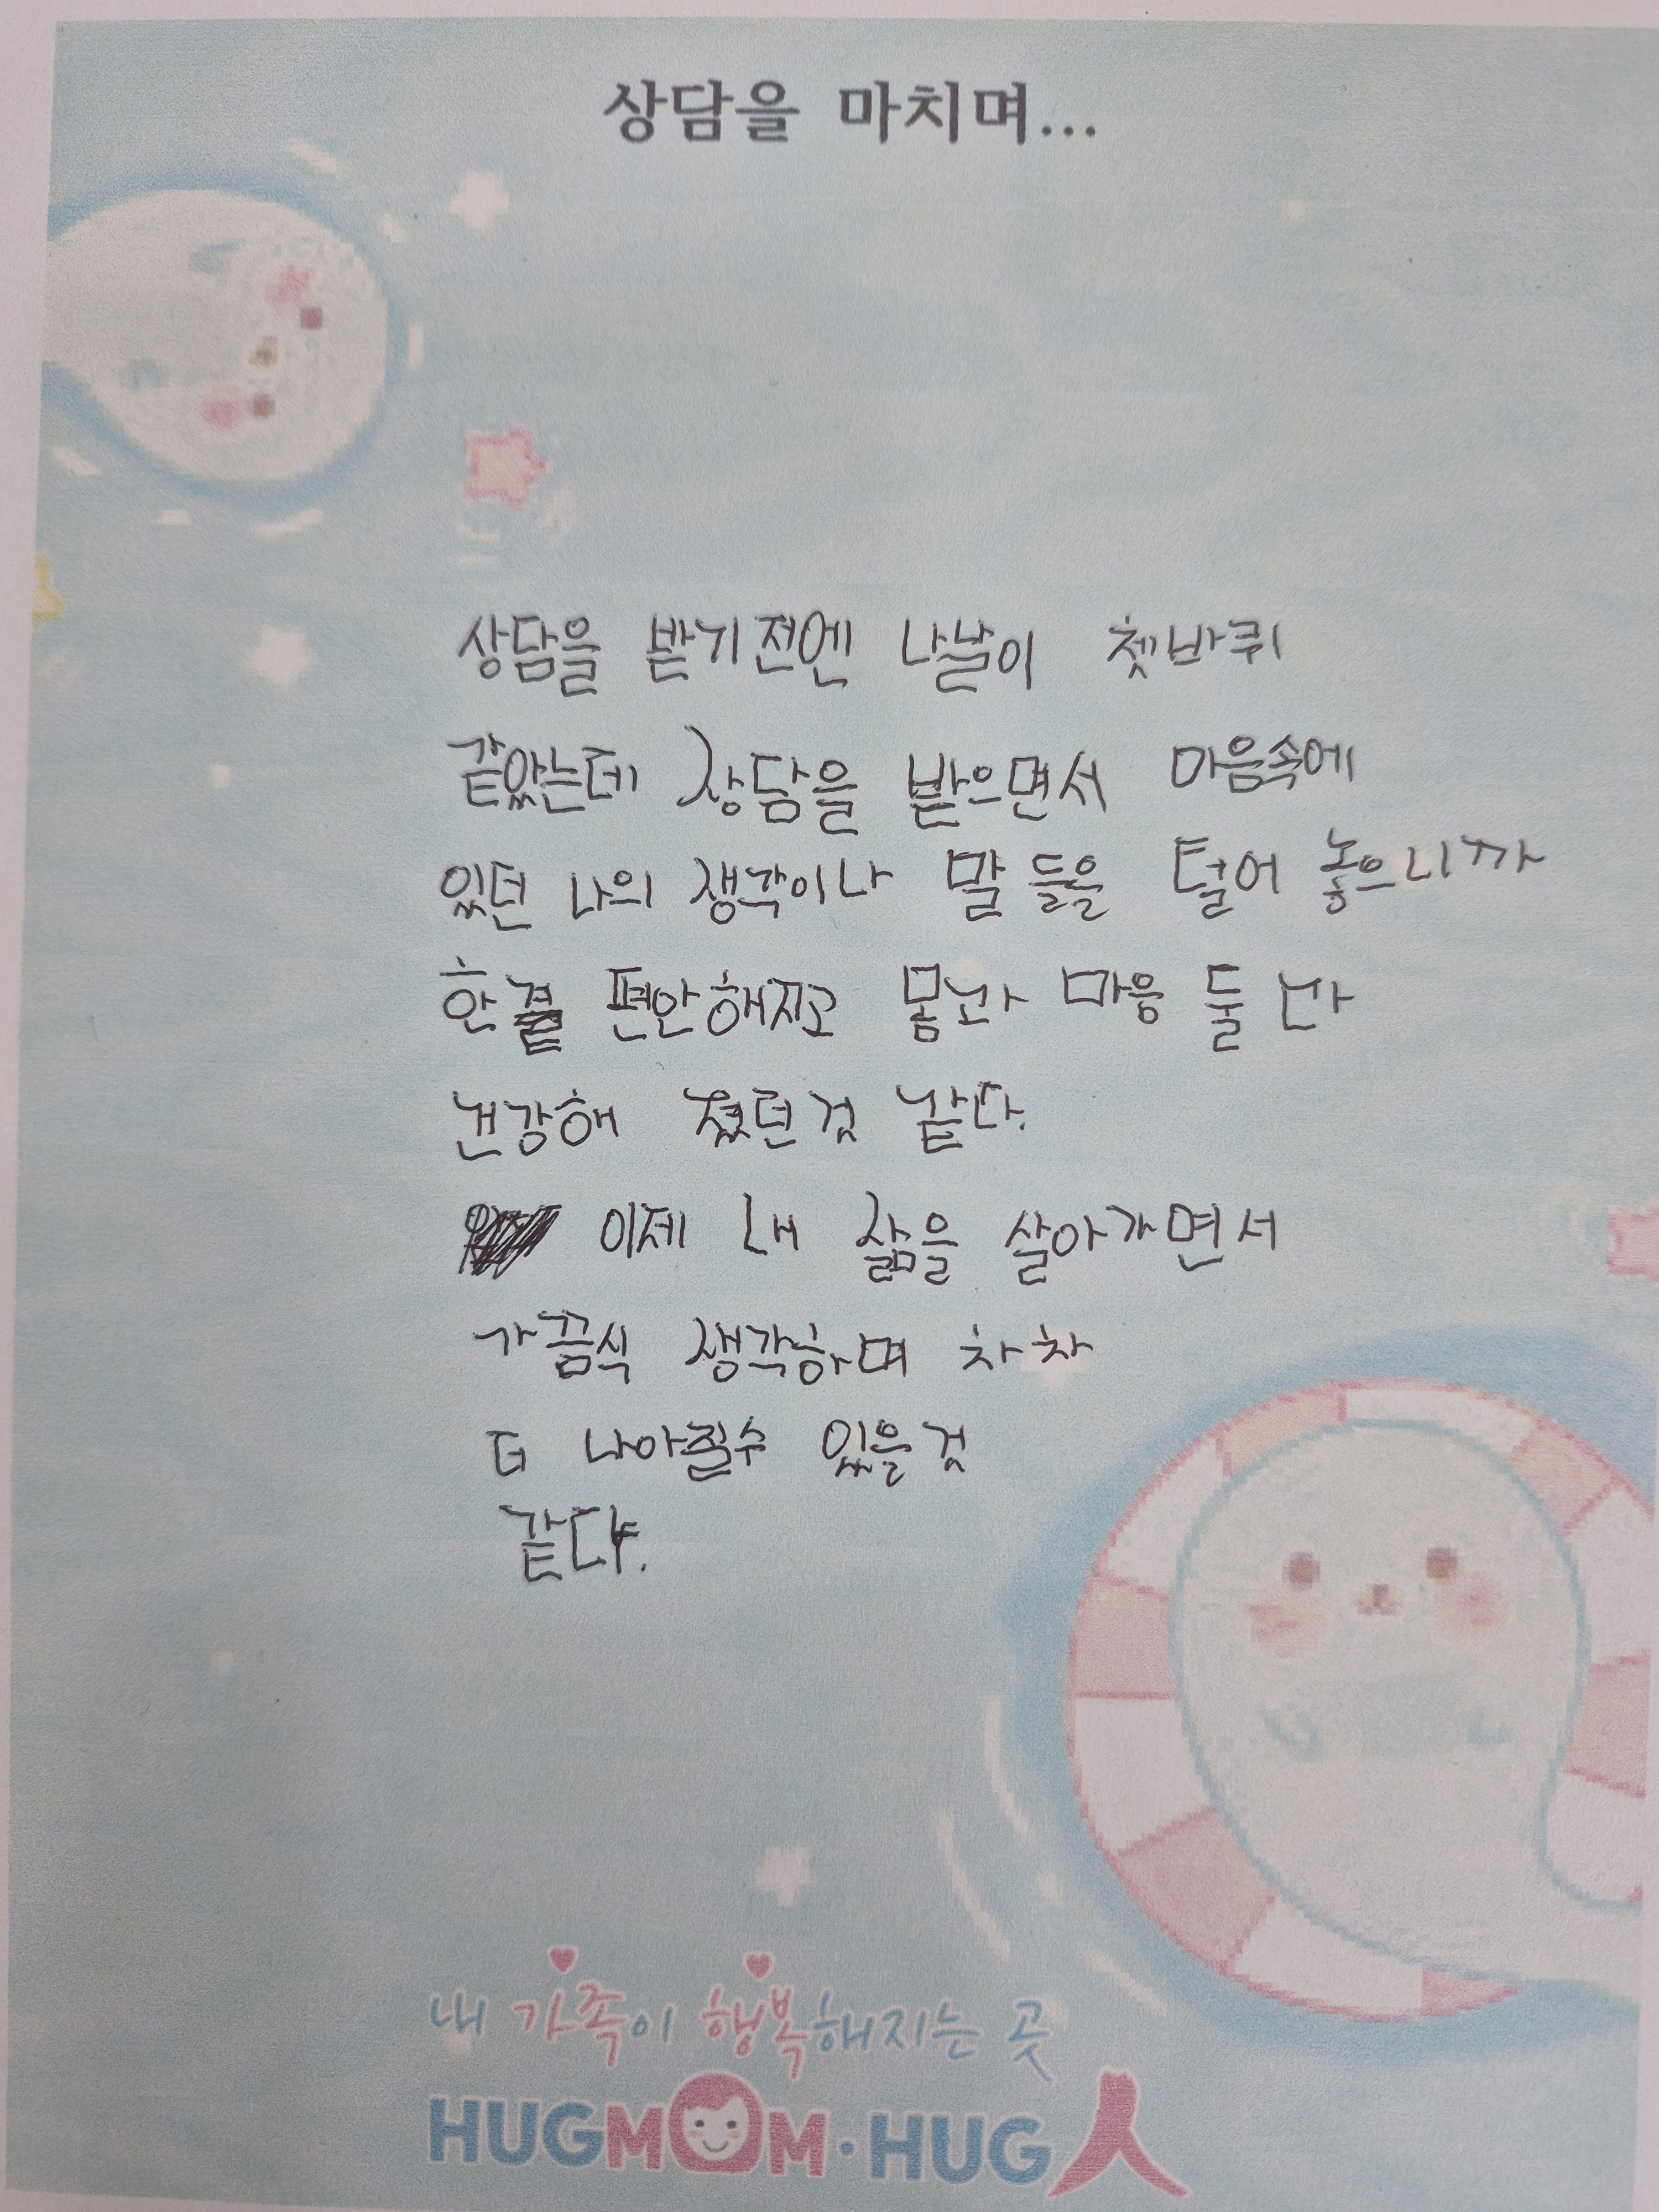 상담을 마치며...
상담을 받기전엔 나날이 쳇바퀴
같았는데 상담을 받으면서 마음속에
있던 나의 생각이나 말들을 털어 놓으니까
한결 편안해지고 몸과 마음 둘 다
건강해 졌던것 같다.
이제 내 삶을 살아가면서
가끔식 생각하며 차차
더 나아질수 있을것
같다.
내 가족이 행복해지는 곳
HUGMOM·HUG人